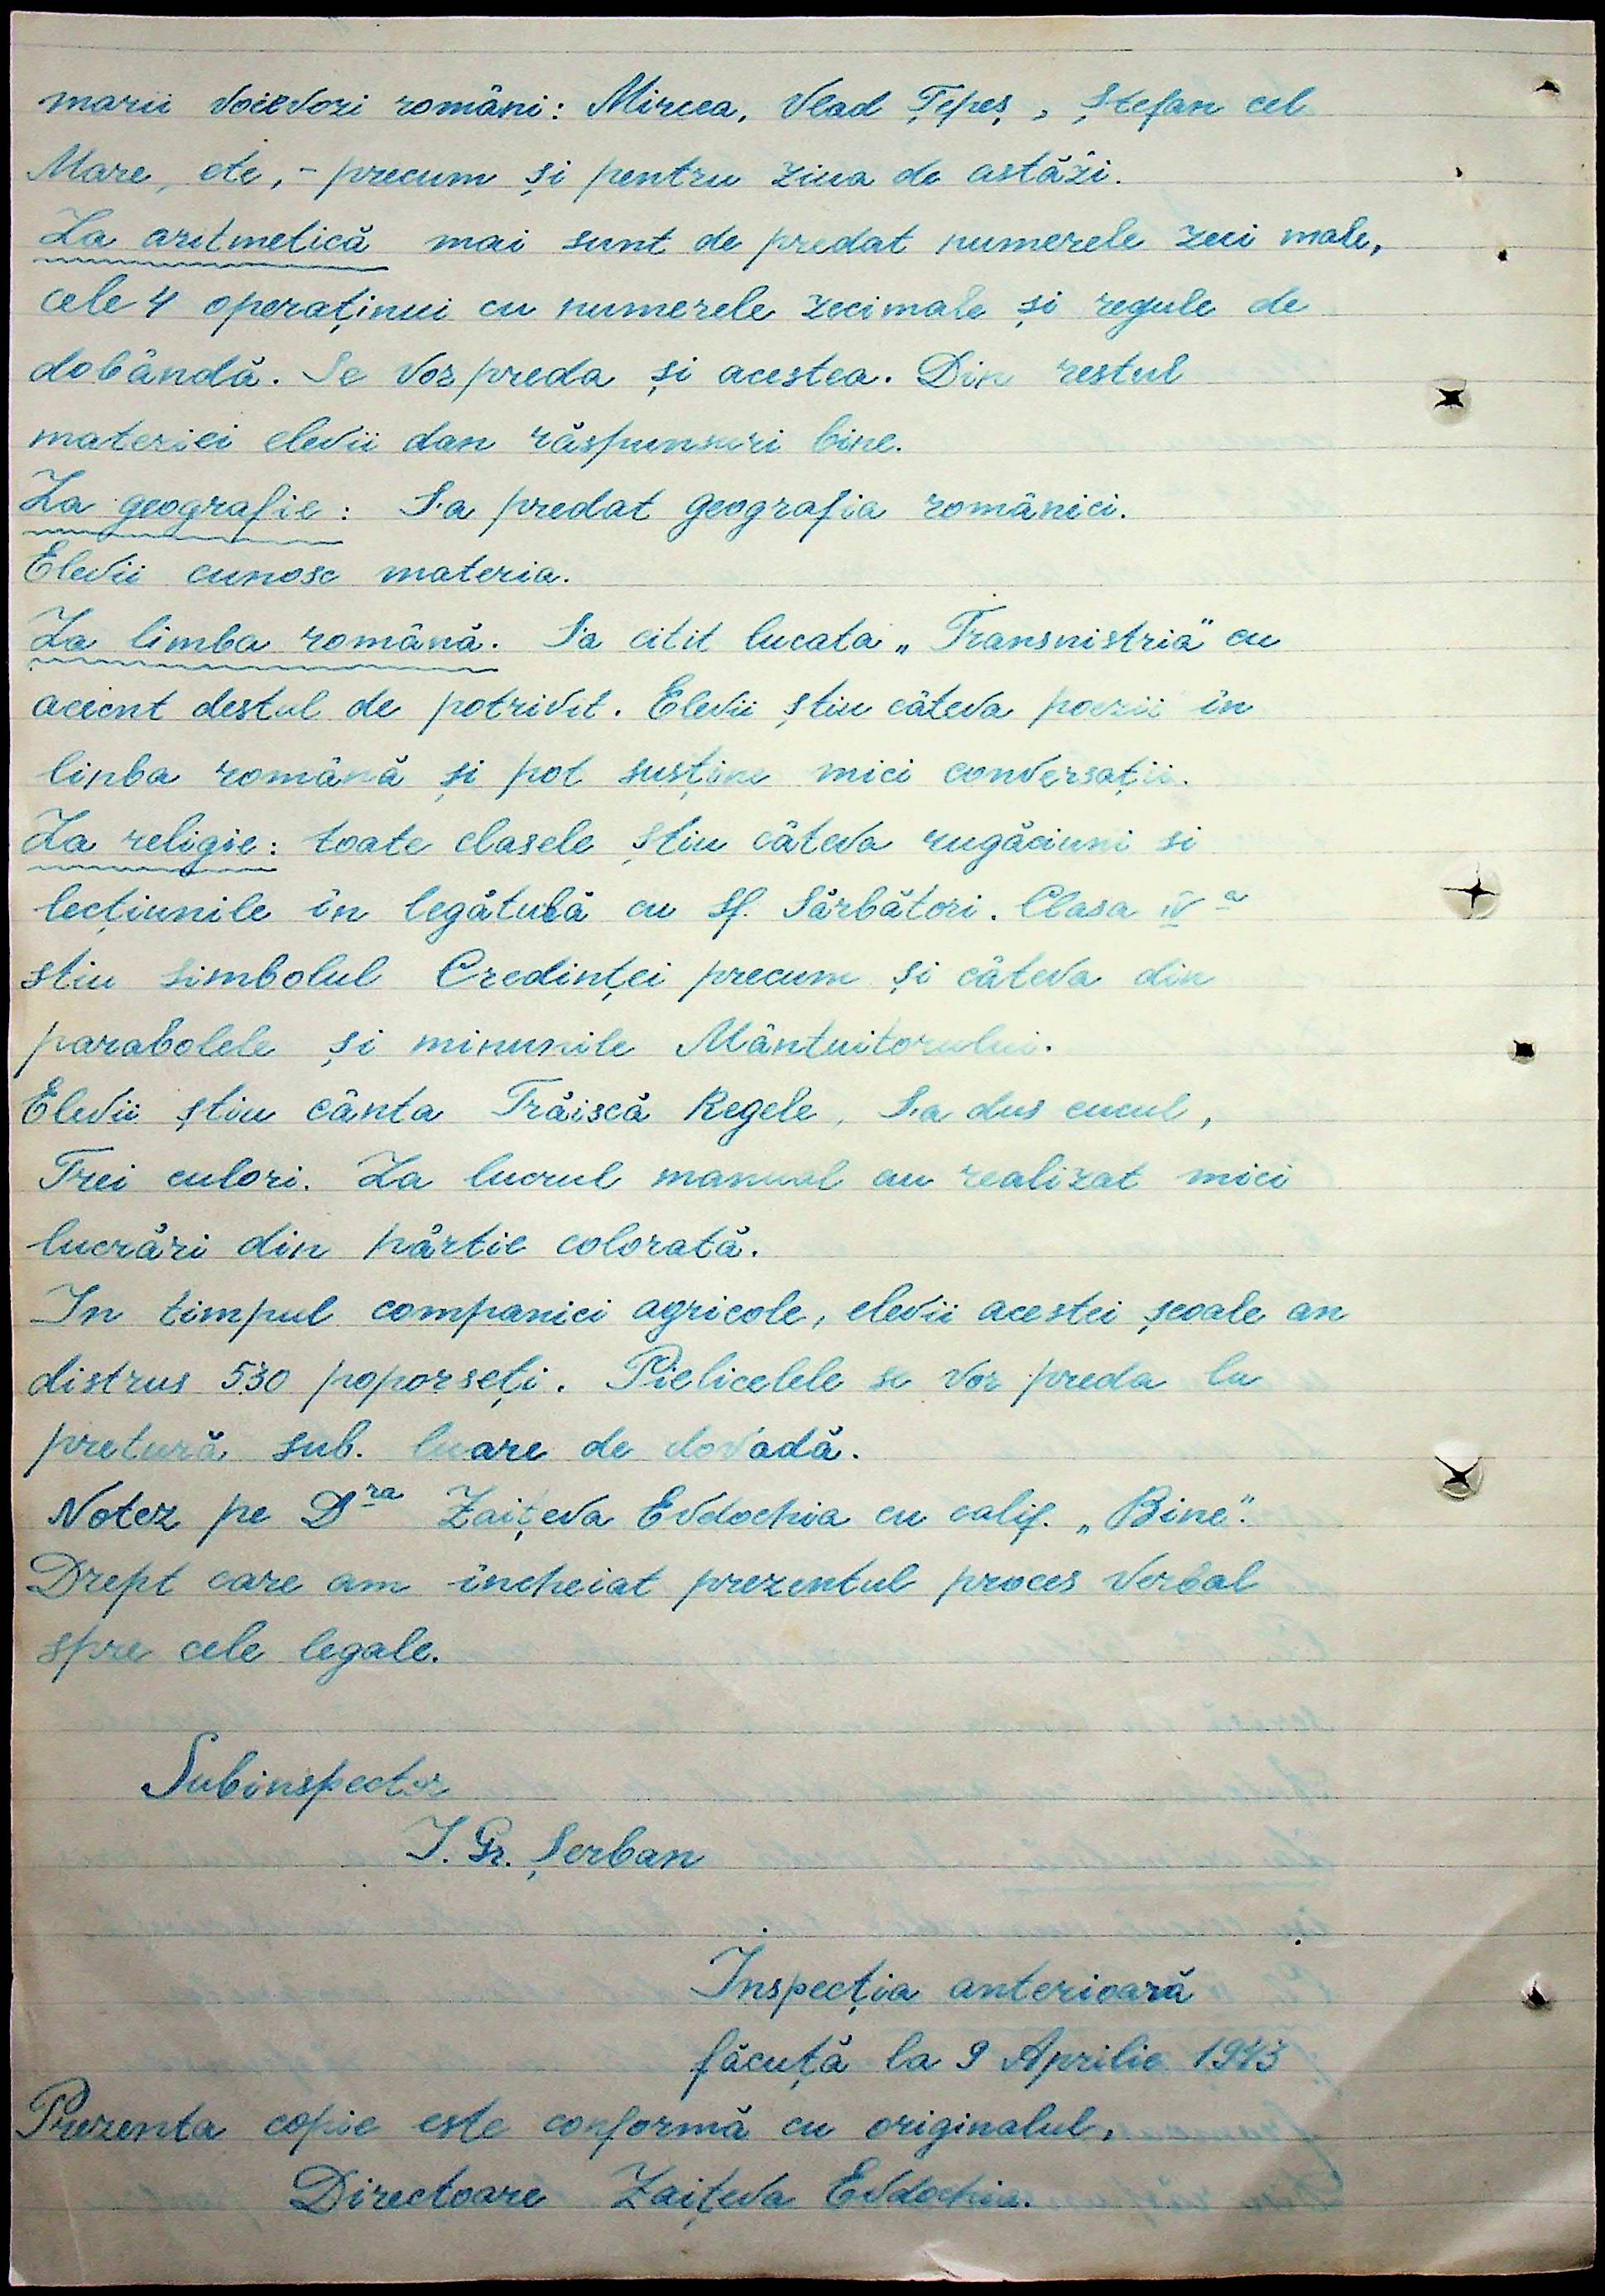 marii voievozi români: Mircea, Vlad Țepeș, Ștefan cel
Mare, etc, - precum și pentru ziua de astăzi.
La aritmetică mai sunt de predat numerele zeci male,
cele 4 operaținui cu numerele zecimale și regule de
dobândă. Se vor preda și acestea. Din restul
materiei elevii dau răspunsuri bine.
La geografie: S'a predat geografia românici.
Elevii cunosc materia.
La limba română. S'a citit lucata „Transnistria" cu
acient destul de potrivit. Elevii știu câteva poezii în
linba română și pot susține mici conversații.
La religie: toate clasele știu câteva rugăciuni si
lecțiunile în legătulă cu Sf. Sărbători. Clasa IV a
stiu Simbolul Credinței precum și câteva din
parabolele și minunile Mântuitorului.
Elevii știu cânta Trăiscă Regele, S'a dus cucul,
Trei culori. La lucrul manual au realizat mici
lucrări din hârtie colorată.
In timpul companiei agricole, elevii acestei școale au
distrus 530 poporseți. Pielicelele se vor preda la
pretură sub. luare de dovadă.
Notez pe D ra Zaițeva Evdochia cu calif. „Bine".
Drept care am încheiat prezentul proces verbal
spre cele legale.
Subinspector
I. Gr. Șerban
Inspecția anterioară
făcuță la 9 Aprilie 1943
Prezenta copie este conformă cu originalul.
Directoare Zaițeva Evdochia.